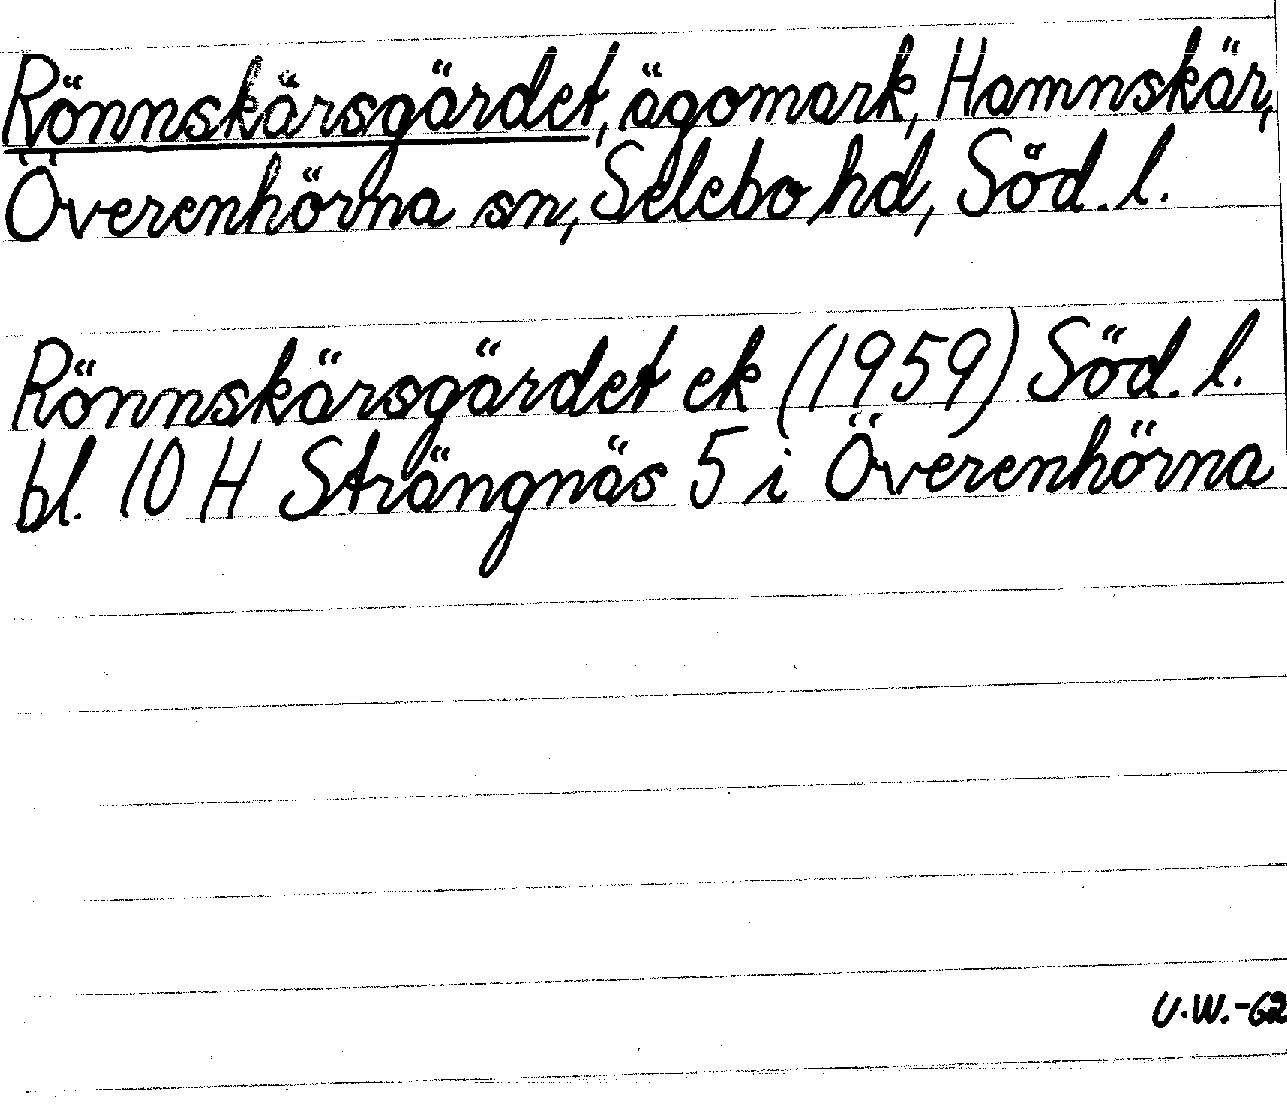 Rönnskärsgärdet, ägomark, Hamnskär,
Överenhörna sn, Selebo hd, Söd. l.
Rönnskärsgärdet ek (1959) Söd. l.
bl. 10 H Strängnäs 5 i Överenhörna
U.W.-62